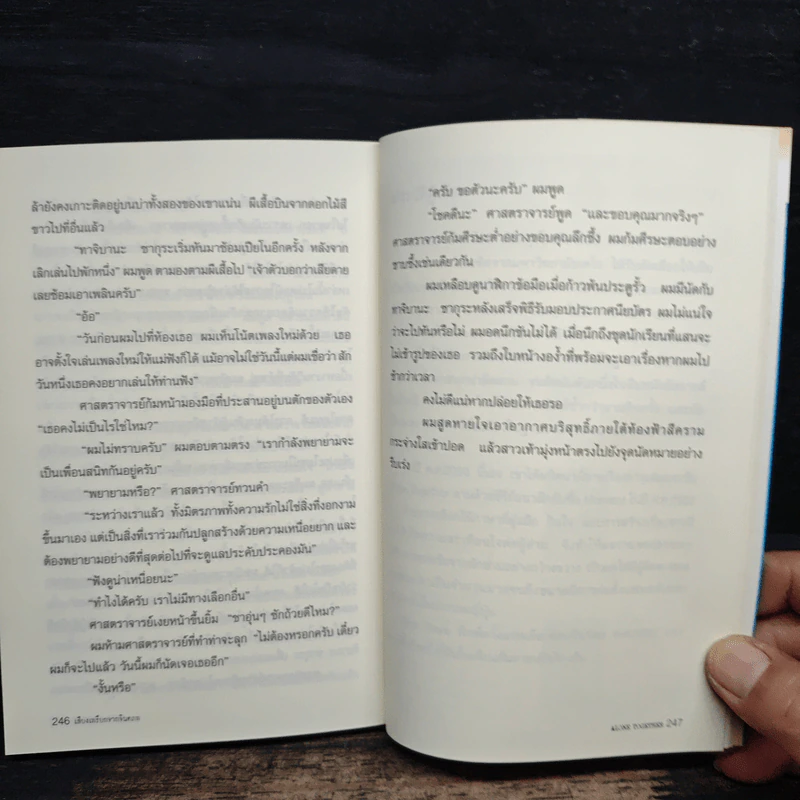 ล้ายังคงเกาะติดอยู่บนบ่าทั้งสองของเขาแน่น ผีเสื้อบินจากดอกไม้สี
ขาวไปที่อื่นแล้ว
"ทาจิบานะ ซากุระเริ่มหันมาซ้อมเปียโนอีกครั้ง หลังจาก
เลิกเล่นไปพักหนึ่ง" ผมพูด ตามองตามผีเสื้อไป "เจ้าตัวบอกว่าเสียดาย
เลยซ้อมเอาเพลินครับ"
"อ้อ"
"วันก่อนผมไปที่ห้องเธอ ผมเห็นโน้ตเพลงใหม่ด้วย เธอ
อาจตั้งใจเล่นเพลงใหม่ให้แม่ฟังก็ได้ แม้อาจไม่ใช่วันนี้แต่ผมเชื่อว่า สัก
วันหนึ่งเธอคงอยากเล่นให้ท่านฟัง"
ศาสตราจารย์ก้มหน้ามองมือที่ประสานอยู่บนตักของตัวเอง
"เธอคงไม่เป็นไรใช่ไหม?"
"ผมไม่ทราบครับ" ผมตอบตามตรง "เรากำลังพยายามจะ
เป็นเพื่อนสนิทกันอยู่ครับ"
"พยายามหรือ?" ศาสตราจารย์ทวนคำ
"ระหว่างเราแล้ว ทั้งมิตรภาพทั้งความรักไม่ใช่สิ่งที่งอกงาม
ขึ้นมาเอง แต่เป็นสิ่งที่เราร่วมกันปลูกสร้างด้วยความเหนื่อยยาก และ
ต้องพยายามอย่างดีที่สุดต่อไปที่จะดูแลประคับประคองมัน"
"ฟังดูน่าเหนื่อยนะ"
"ทำไงได้ครับ เราไม่มีทางเลือกอื่น"
ศาสตราจารย์เงยหน้าขึ้นยิ้ม "ชาอุ่นๆ ซักถ้วยดีไหม?"
ผมห้ามศาสตราจารย์ที่ทำท่าจะลุก "ไม่ต้องหรอกครับ เดี๋ยว
ผมก็จะไปแล้ว วันนี้ผมก็นัดเจอเธออีก"
"งั้นหรือ"
246
"ครับ ขอตัวนะครับ" ผมพูด
"โชคดีนะ" ศาสตราจารย์พูด "และขอบคุณมากจริงๆ"
ศาสตราจารย์ก้มศีรษะต่ำอย่างขอบคุณลึกซึ้ง ผมก้มศีรษะตอบอย่าง
ซาบซึ้งเช่นเดียวกัน
ผมเหลือบดูนาฬิกาข้อมือเมื่อก้าวพ้นประตูรั้ว ผมมีนัดกับ
ทาจิบานะ ซากุระหลังเสร็จพิธีรับมอบประกาศนียบัตร ผมไม่แน่ใจ
ว่าจะไปทันหรือไม่ ผมอดนึกขันไม่ได้ เมื่อนึกถึงชุดนักเรียนที่แสนจะ
ไม่เข้ารูปของเธอ รวมถึงใบหน้างอง้ำที่พร้อมจะเอาเรื่องหากผมไป
ช้ากว่าเวลา
คงไม่ดีแน่หากปล่อยให้เธอรอ
ผมสูดหายใจเอาอากาศบริสุทธิ์ภายใต้ท้องฟ้าสีคราม
กระจ่างใสเข้าปอด แล้วสาวเท้ามุ่งหน้าตรงไปยังจุดนัดหมายอย่าง
รีบเร่ง
247